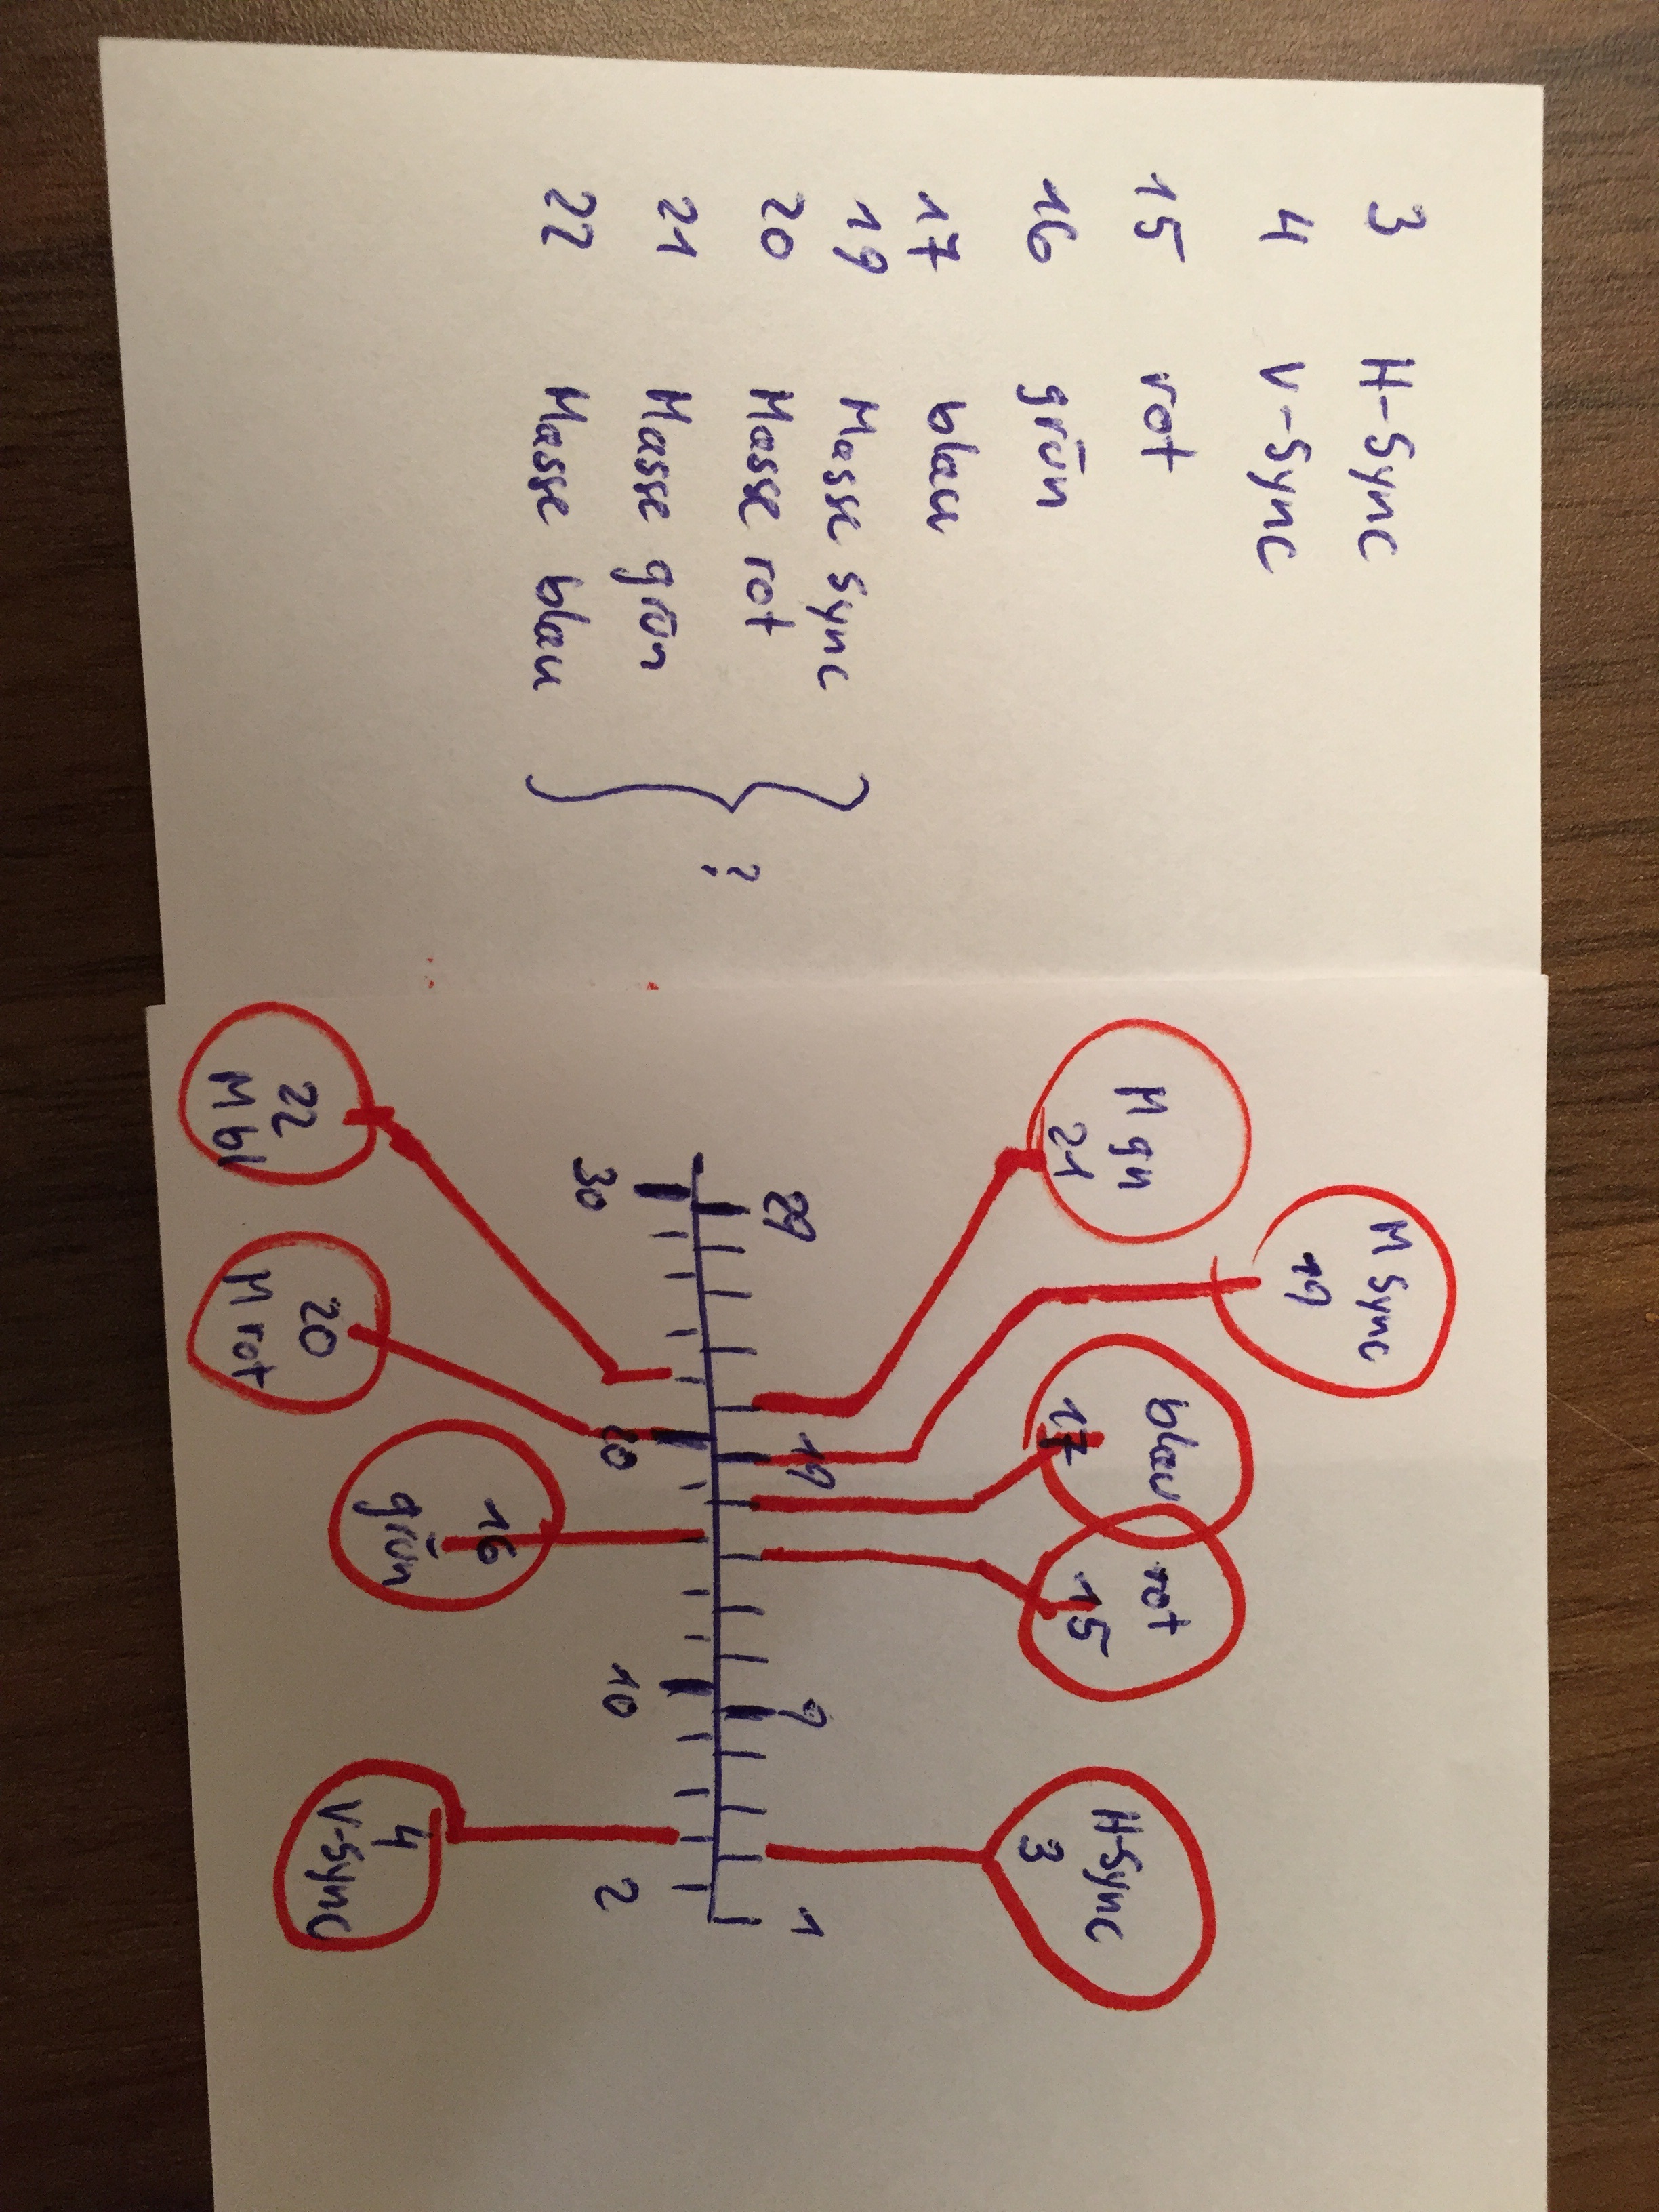 3 H-Sync
4 V-Sync
15 rot
16 grün
17 blau
19 Masse Sync
20 Masse rot
21 Masse grün
22 Masse blau
?
M Sync
19
M gn
21
blau
17
rot
15
H-Sync
3
29
19
9
1
30
20
10
2
22
M bl
20
M rot
16
grün
4
V-Sync